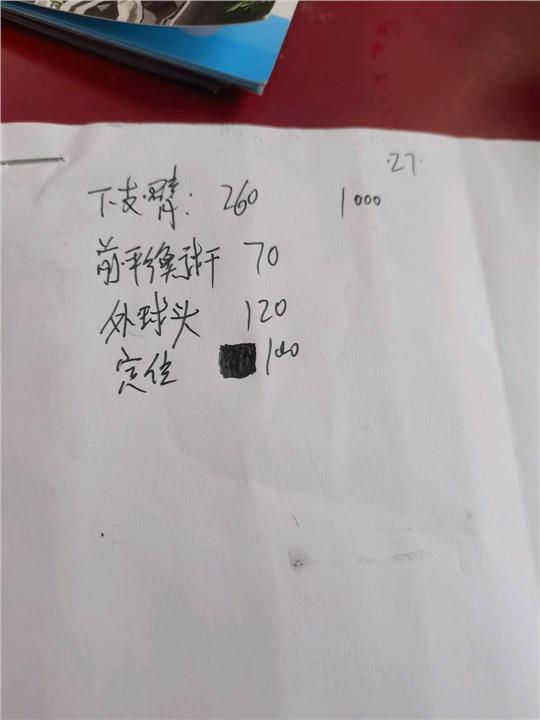 ·27·
下支臂: 260 1000
前平衡杆 70
外球头 120
定位 100